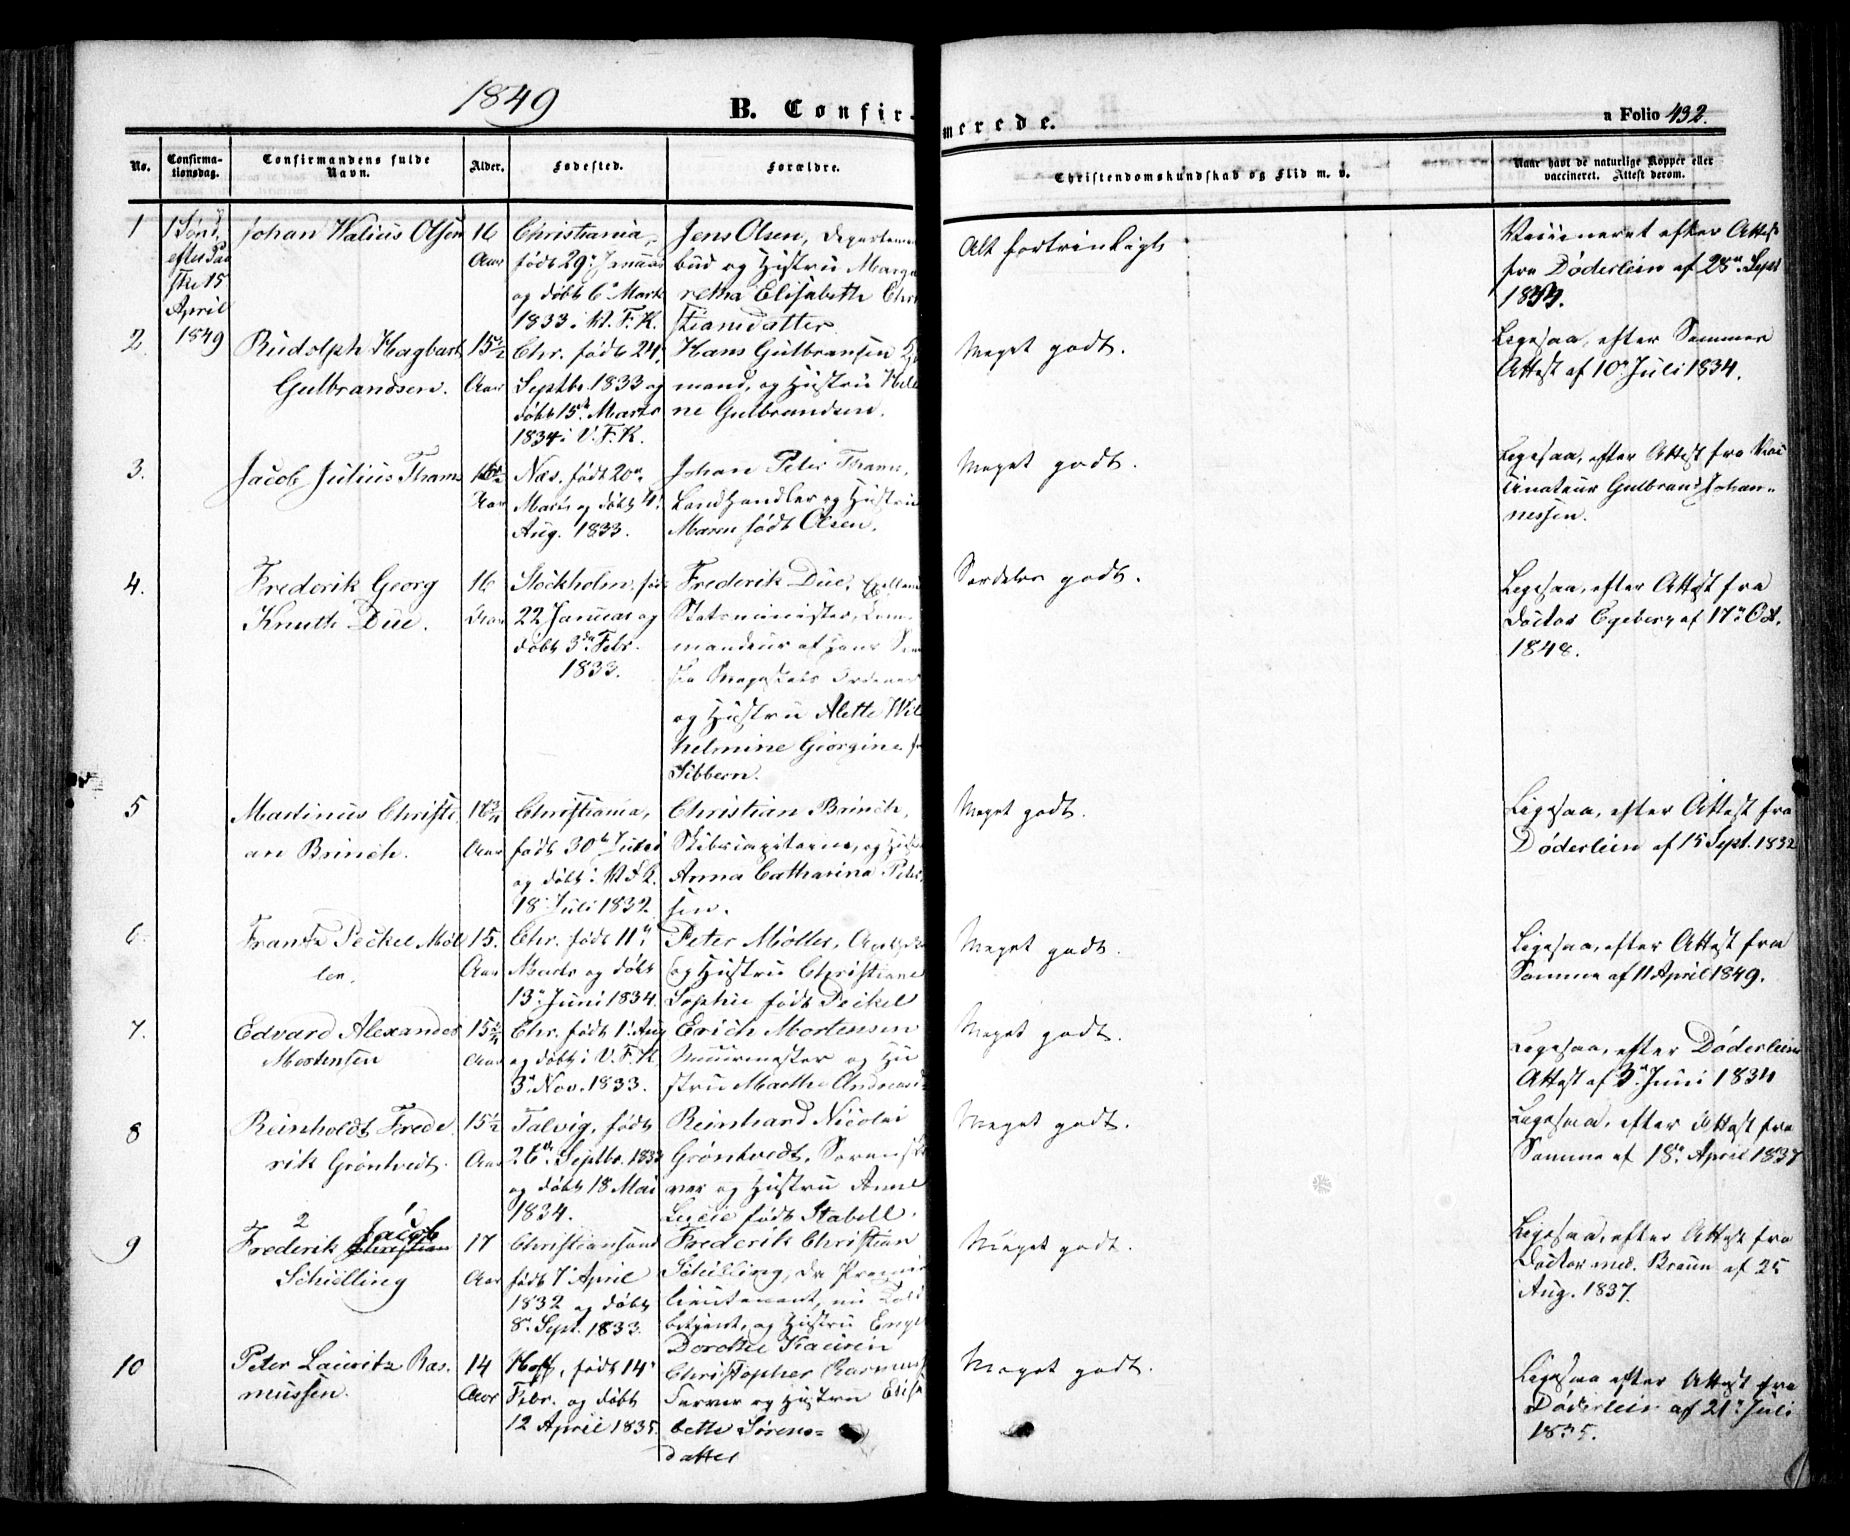 1849
B. Confir-
merede.
a Folio 432.
No.
Confirma-
tionsdag.
Confirmandens fulde
Navn.
Alder.
Fødested.
Forældre.
Christendomskundskab og Flid m. v.
Naar havt de naturlige Kopper eller
vaccineret. Attest derom.
1
1 Sønd.
efter Paa
ske 15
April
1849
Johan Walius Olsen
16
Aar
Christiania,
født 29. Januar
og døbt 6. Marts
1833 i V. F. K.
Jens Olsen, Departements
bud og Hustru Marga
retha Elisabeth Chri
stiansdatter.
Alt fortrinligt
Vaccineret efter Attest
fra Døderlein af Sept
2.
Rudolph Hagbart
Gulbrandsen.
15½
Aar
Chr. født 24.
Septbr. 1833 og
døbt 15. Marts
1834 i V. F. K.
Hans Gulbransen
mand, og Hustru Hele
ne Gulbrandsen.
Meget godt.
Ligesaa, efter Sammes
Attest af 10. Juli 1834.
3.
Jacob Julius Thams
Aar
Næs, født 20de
Marts og døbt 4.
Aug. 1833.
Johan Peter Thams,
Landhandler og Hustru
Maren født Olsen.
Meget godt.
Ligesaa, efter Attest fra Vac
cinateur Gulbrand Johan-
nessen.
4.
Frederik Georg
Knuth Due.
16
Aar
Stockholm, født
22 Januar og
døbt 3de Febr.
1833.
Frederik Due,
Statsminister, Com-
mandeur af Hans
Majestæts Ordener
og Hustru Alette Wil
helmine Georgine f
Sibbern.
Særdeles godt.
Ligesaa, efter Attest fra
Doctor Egeberg af 17de Oct.
1848.
5
Martinus Christi
an Brinch.
Aar
Christiania,
født 30te Juni
og døbt i V. F. K.
18. Juli 1832.
Christian Brinch,
Skibscapitaine, og Hustru
Anna Catharina Peter
sen.
Meget godt.
Ligesaa, efter Attest fra
Døderlein af 15 Sept. 1832
6.
Frantz Peckel Møl
ler.
15.
Aar
Chr. født 11te
Marts og døbt
13. Juni 1834.
Peter Møller, Apotheker
og Hustru Christiane
Sophie født Peckel
Meget godt.
Ligesaa, efter Attest fra
Samme af 11 April 1849.
7.
Edvard Alexander
Mortensen
Aar
Chr. født 1. Aug
og døbt i V. F. K.
3. Nov. 1833.
Erich Mortensen
Muurmester og Hu
stru Marthe Andreasd
Meget godt.
Ligesaa, efter Døderleins
Attest af 3. Juni 1834
8
Reinholdt Frede
rik Grøntvedt.
15½
Aar
Talvig, født
26de Septbr. 1833
og døbt 18 Mai
1834.
Reinhard Nicolai
Grøntvedt, Sorenskri
ver og Hustru Anne
Lucie født Stabell.
Meget godt.
Ligesaa, efter Attest fra
Samme af 18de April 1837
9
2 1
Frederik Christian Jacob
Schielling
17
Aar
Christiansand
født 7. April
1832 og døbt
8. Sept. 1833.
Frederik Christian
Schilling, da Premier
lieutenant, nu Told
betjent, og Hustru Engel
Dorothe Kaurin
Meget godt.
Ligesaa, efter Attest fra
Doctor med. Braun af 25
Aug. 1837.
10
Peter Lauritz Ras
mussen.
14
Aar
Hoff, født 14.
Febr. og døbt
12 April 1835.
Christopher Rasmus
Farver og Hustru Elisa
beth Sørens=
datter
Meget godt.
Ligesaa efter Attest fra
Døderlein af 21. Juli
1835.